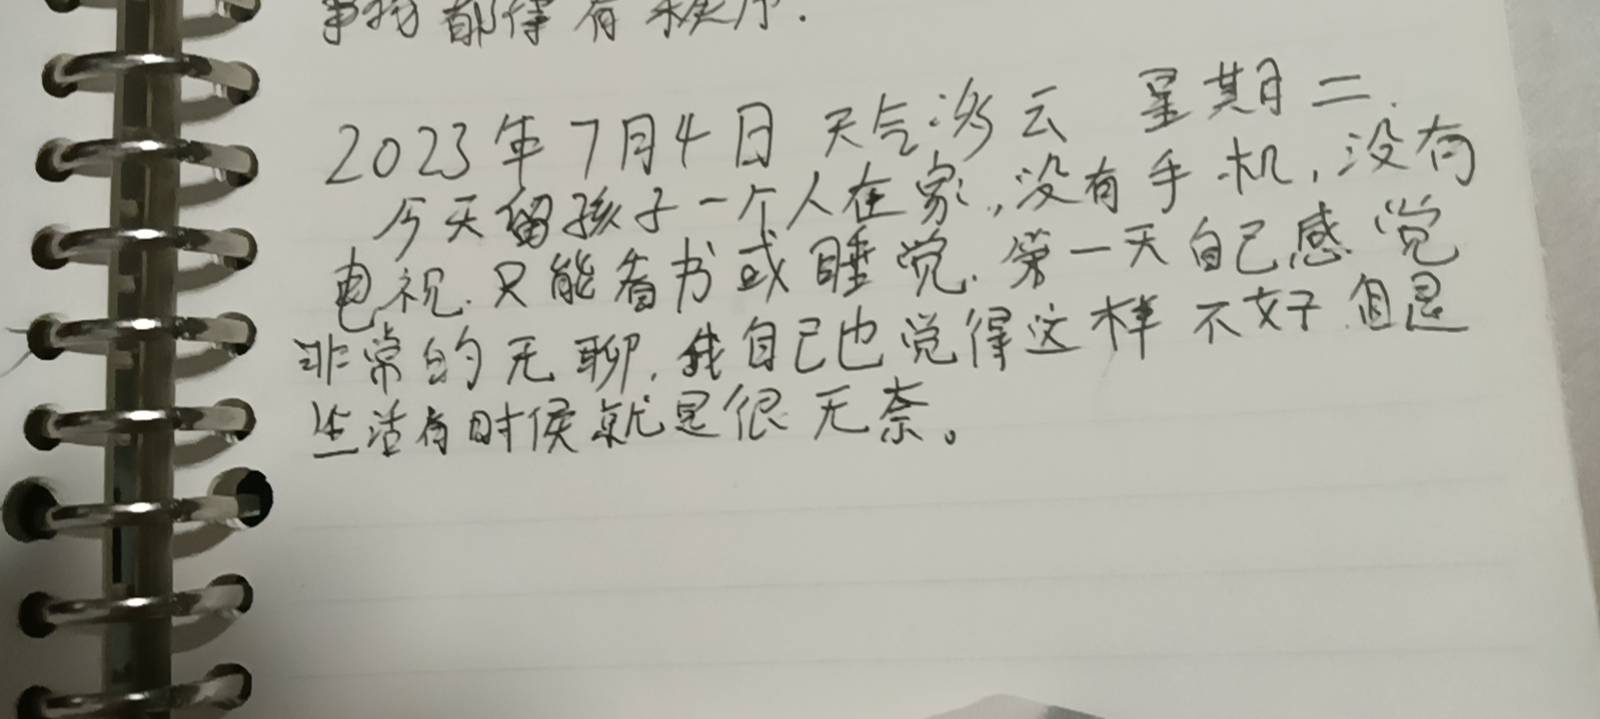 事物都得有秩序.
2023年7月4日 天气:多云 星期二.
今天留孩子一个人在家,没有手机,没有
电视.只能看书或睡觉.第一天自己感觉
非常的无聊.我自己也觉得这样不好.但是
生活有时候就是很无奈。